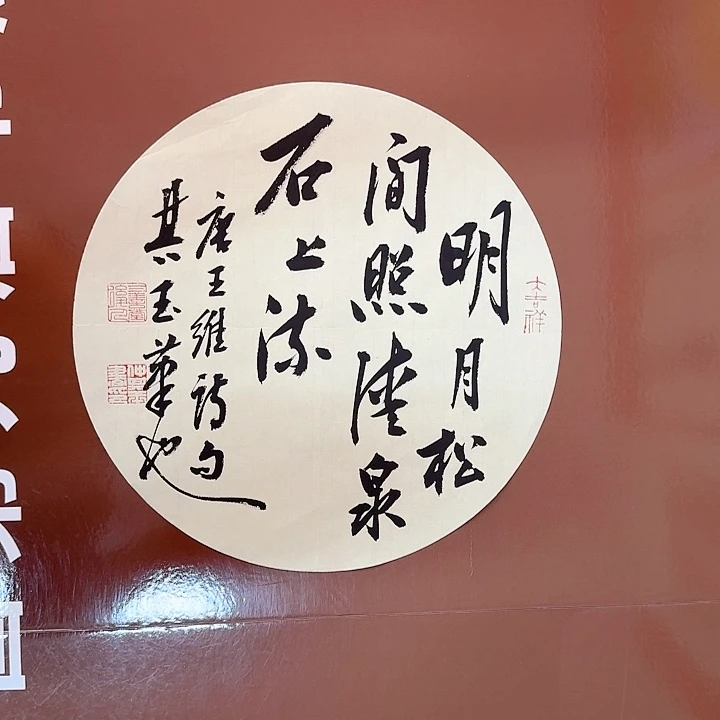 大吉祥
明月松
间照清泉
石上流
唐王維詩句
其玉筆也